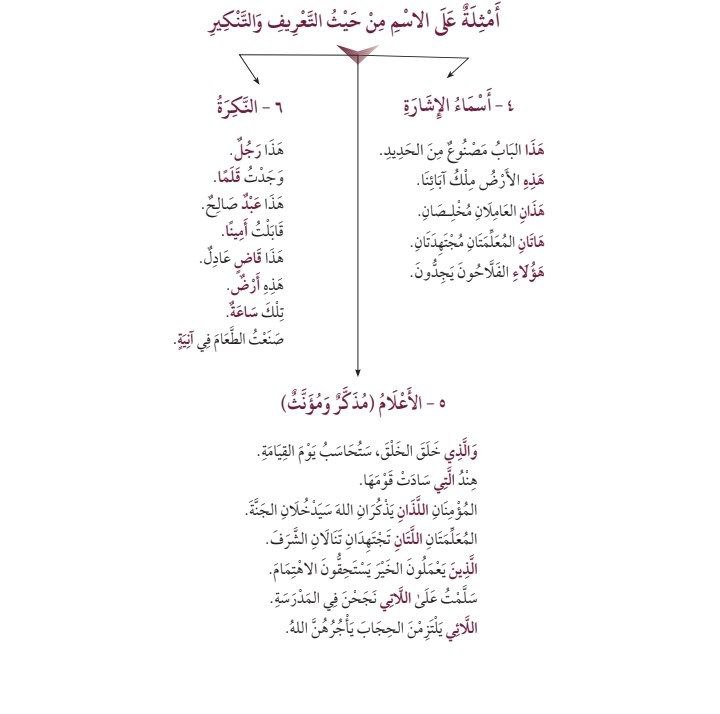 أَمْثِلَةٌ عَلَى الاسْمِ مِنْ حَيْثُ التَّعْرِيفِ وَالتَّنْكِيرِ
٤ - أَسْمَاءُ الإِشَارَةِ
هَذَا البَابُ مَصْنُوعٌ مِنَ الحَدِيدِ.
هَذِهِ الأَرْضُ مِلْكُ آبَائِنَا.
هَذَانِ العَامِلَانِ مُخْلِصَانِ.
هَاتَانِ المُعَلِّمَتَانِ مُجْتَهِدَتَانِ.
هَؤُلاءِ الفَلَّاحُونَ يَجِدُّونَ.
٦ - النَّكِرَةُ
هَذَا رَجُلٌ.
وَجَدْتُ قَلَمًا.
هَذَا عَبْدٌ صَالِحٌ.
قَابَلْتُ أَمِينًا.
هَذَا قَاضٍ عَادِلٌ.
هَذِهِ أَرْضٌ.
تِلْكَ سَاعَةٌ.
صَنَعْتُ الطَّعَامَ فِي آنِيَةٍ.
٥ - الأَعْلَامُ (مُذَكَّرٌ وَمُؤَنَّثٌ)
وَالَّذِي خَلَقَ الخَلْقَ، سَتُحَاسَبُ يَوْمَ القِيَامَةِ.
هِنْدُ الَّتِي سَادَتْ قَوْمَهَا.
المُؤْمِنَانِ اللَّذَانِ يَذْكُرَانِ اللهَ سَيَدْخُلَانِ الجَنَّةَ.
المُعَلِّمَتَانِ اللَّتَانِ تَجْتَهِدَانِ تَنَالَانِ الشَّرَفَ.
الَّذِينَ يَعْمَلُونَ الخَيْرَ يَسْتَحِقُّونَ الاهْتِمَامَ.
سَلَّمْتُ عَلَىٰ اللَّاتِي نَجَحْنَ فِي المَدْرَسَةِ.
اللَّائِي يَلْتَزِمْنَ الحِجَابَ يَأْجُرُهُنَّ اللهُ.